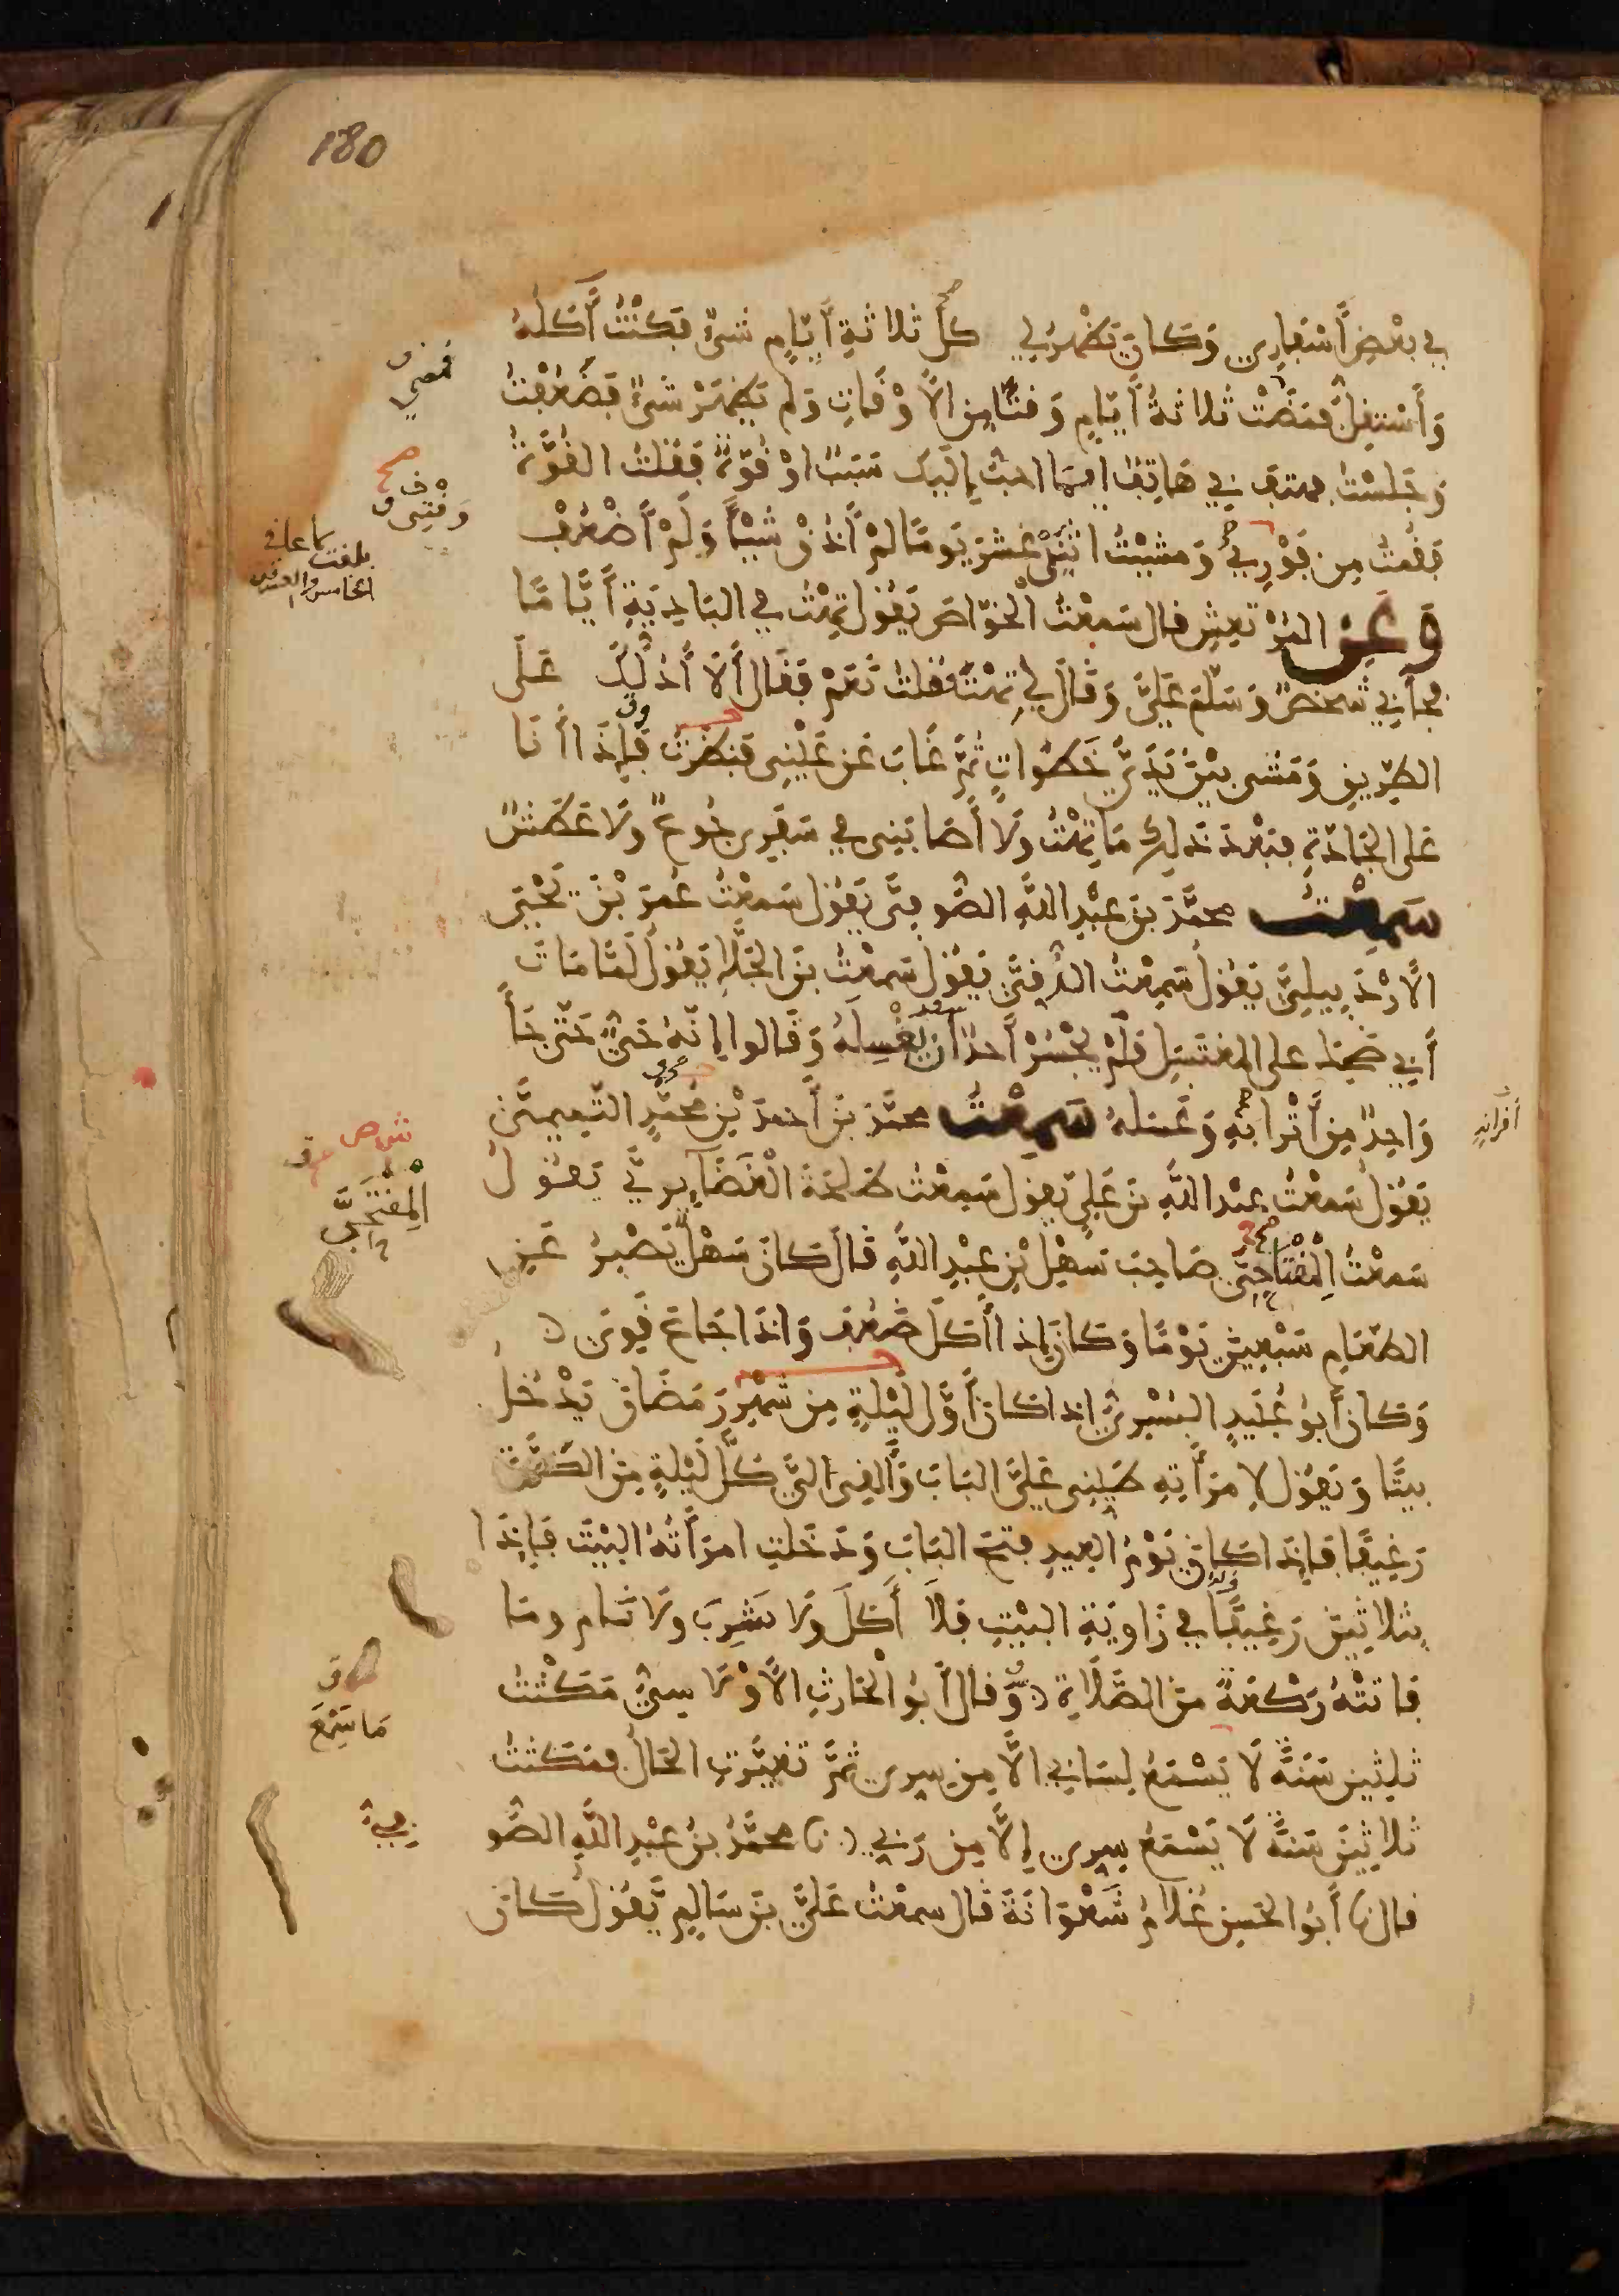 180
في بعض أسفاري وكان يظهر لي كل ثلاثة أيام شيء فكنت آكله
وأستقل فمضت ثلاثة أيام وقتا من الأوقات ولم يظهر شيء فضعفت
وجلست فهتف بي هاتف ايما احب إليك سبب او قوة فقلت القوة
فقمت من فوري ومشيت اثني عشر يوما لم أذق شيئا ولم أضعف
وعن المرتعش قال سمعت الخواص يقول تهت في البادية أياما
فجاءني شخص وسلم علي وقال لي تهت فقلت نعم فقال ألا أدلك على
الطريق ومشى بين يدي خطوات ثم غاب عن عيني فنظرت فإذا أنا
على الجادة فبعد ذلك ما تهت ولا أصابني في سفري جوع ولا عطش
سمعت محمد بن عبد الله الصوفي يقول سمعت عمر بن يحيى
الأردبيلي يقول سمعت الدقي يقول سمعت بن الجلاء يقول لما مات
أبي ضحك على المغتسل فلم يجسر أحد أن يغسله وقالوا إنه حي حتى جاء
واحد من أترابه وغسله سمعت محمد بن أحمد بن محمد التميمي
أقرانه
يقول سمعت عبد الله بن علي يقول سمعت طلحة الغضايري يقول
المفتحي
سمعت المفتاحي صاحب سهل بن عبد الله قال كان سهل يصبر عن
الطعام سبعين يوما وكان إذا أكل ضعف وإذا جاع قوي
وكان أبو عبيد البسري إذا كان أول ليلة من شهر رمضان يدخل
بيتا ويقول لامرأته طيني علي الباب وألقي إلي كل ليلة من الكوة
رغيفا فإذا كان يوم العيد فتح الباب ودخلت امرأته البيت فإذا
بثلاثين رغيفا في زاوية البيت فلا أكل ولا شرب ولا نام وما
فاتته ركعة من الصلاة وقال أبو الحارث الأولاسي مكثت
ما يسمع
ثلثين سنة لا يسمع لساني إلا من سري ثم تغيرت الحال فمكثت
ثلاثين سنة لا يسمع سري إلا من ربي محمد بن عبد الله الصو
قال أبو الحسن غلام شعوانة قال سمعت علي بن سالم يقول كان